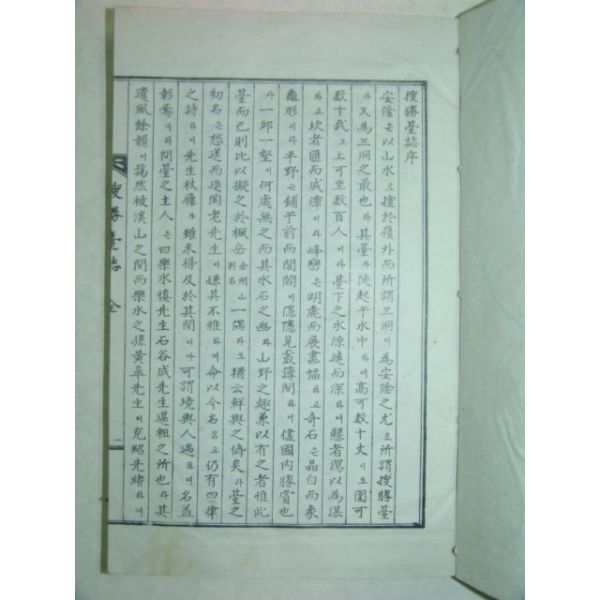 搜勝臺誌序
安陰은以山水로擅於嶺外而所謂三洞이爲安陰之尤로所謂搜勝臺
라又爲三洞之最也라其臺가陡起于水中하며高可數十丈이오圍可
數十武오上可坐數百人이라臺下之水深逮而深하야懸者瀉以爲瀑
하고坎者匯而成潭이라峰巒은明麗而展畵幅하고奇石은晶白而象
龜形이라平野은鋪于前而閭閻이隱隱見叢薄間하니儘國內勝賞也
라一邱一壑이何處無之而其水石之幽와山野之趣兼以有之者惟此
臺而已則比以擬之於楓岳金剛山別名一隅라도猶云鮮與之儔矣라臺之
初名은愁送而退陶老先生이嫌其不雅하여命以今名하고仍有四律
之詩하여先生杖屨가雖未得及於其間이나可謂境與人遇하여名益
彰焉이라問臺之主人은曰樂水愼先生石谷成先生薖軸之所也라其
遺風餘韻이藹然被溪山之間而樂水之孫黃皐先生이克紹先緖하며
搜勝臺誌 全 一